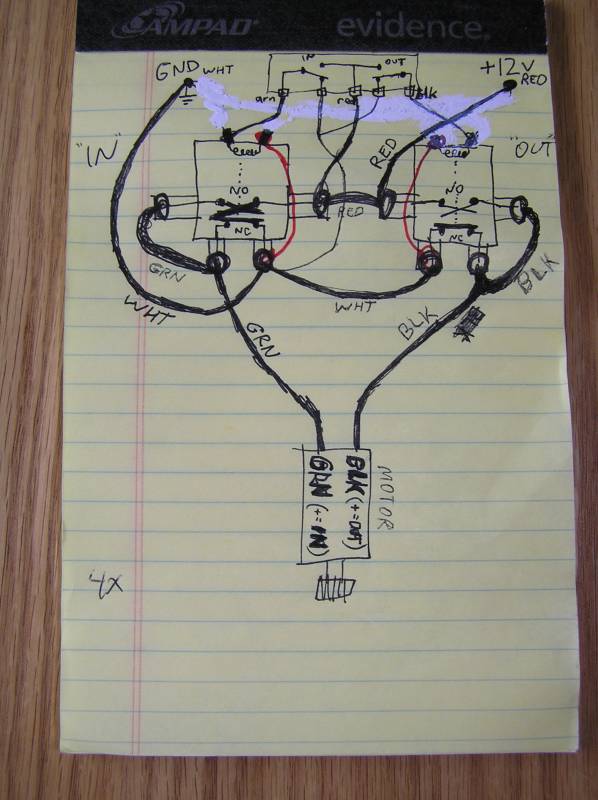 AMPAD
evidence.
GND WHT
IN
OUT
+12V
RED
grn
red
BLK
"IN"
"OUT"
RED
NO
NO
RED
NC
NC
GRN
BLK
WHT
WHT
GRN
BLK
MOTOR
GRN (+=IN)
BLK (+=OUT)
4X